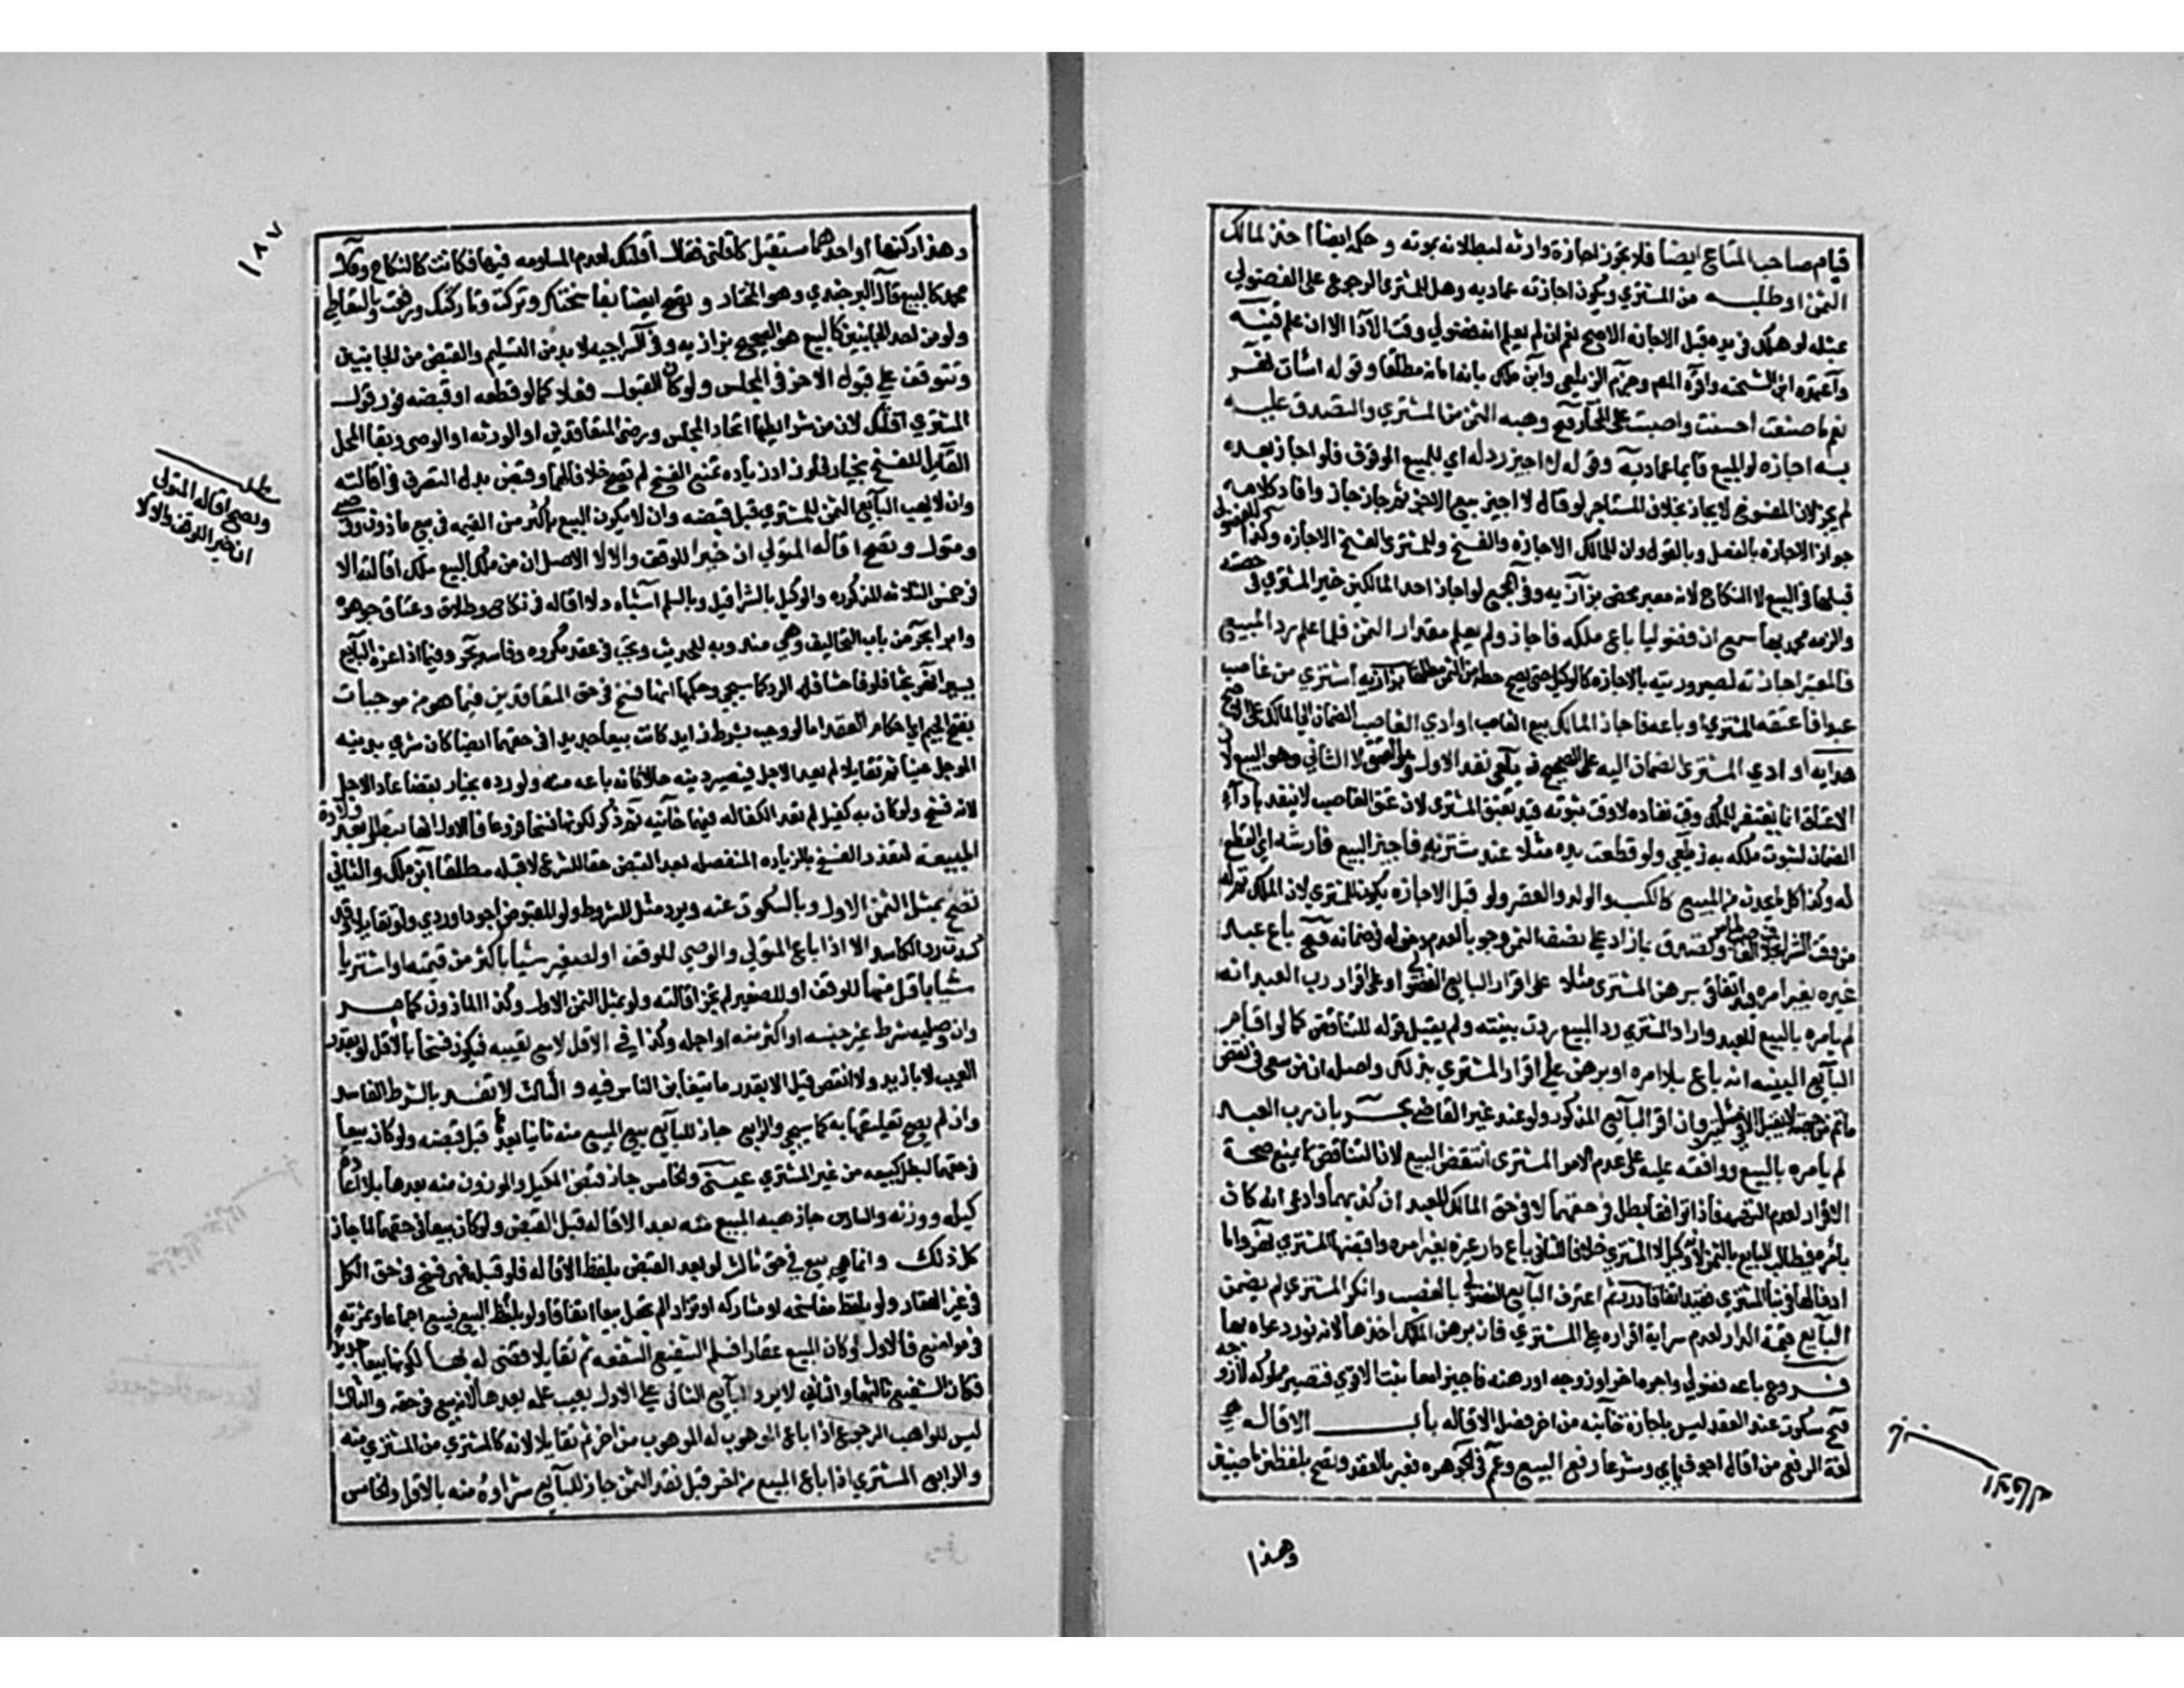 قيام صاحب المتاع ايضا فلا تجوز اجازة وارثه لبطلانه بموته و حكمه ايضا اخذ المالك
الثمن او طلبه من المشتري ويكون اجازته عماديه وهل للمشتري الرجوع على الفضولي
بمثله لو هلك في يده قبل الاجازه الاصح نعم ان لم يعلم انه فضولي وقت الادا الا ان علم قنيه
واعتمده ابن الشحنه واقره المصم وجزم الزيلعي وابن ملك بانه امانه مطلقا وقوله اسات نهر
نعم ما صنعت احسنت واصبت على المختار فتح وهبه الثمن من المشتري والتصدق عليه
به اجازه لو المبيع قايما عماديه وقوله لا اجيز رد له اي للبيع الموقوف فلو اجاز بعده
لم يجز لان المفسوخ لا يجاز بخلاف المستاجر لو قال لا اجيز بيع الاجر ثم اجاز جاز وافاد كلامه
جواز الاجازه بالفعل وبالقول وان للمالك الاجازه والفسخ وللمشتري الفسخ لا الاجازه وكذا للفضولي
قبلها في البيع لا النكاح لانه معبر محض بزازيه وفي المجمع لو اجاز احد المالكين خير المشتري في حصته
والزمه محمد بها سمع ان فضوليا باع ملكه فاجاز ولم يعلم مقدار الثمن فلما علم رد المبيع
فالمعتبر اجازته لصيرورته بالاجازه كالوكيل حتى يصح حطه من الثمن مطلقا بزازيه اشترى من غاصب
عبدا فاعتقه المشتري او باعه فاجاز المالك بيع الغاصب او ادي الغاصب الضمان الى المالك على الاصح
هدايه او ادي المشتري الضمان اليه على الصحيح زيلعي نفذ الاول وهو العتق لا الثاني وهو البيع لان
الاعتاق انما يفتقر للملك وقت نفاذه لا وقت ثبوته قيد بعتق المشتري لان عتق الغاصب لا ينفذ باداء
الضمان لثبوت ملكه به زيلعي ولو قطعت يده مثلا عند مشتريه فاجيز البيع فارشه اي القطع
له وكذا كل ما حدث من المبيع كالكسب والولد والعقر ولو قبل الاجازه يكون للمشتري لان الملك تم له
من وقت الشراء بخلاف الغاصب وتصدق بما زاد على نصف الثمن وجوبا لعدم دخوله في ضمانه فتح باع عبد
غيره بغير امره قيد اتفاقي برهن المشتري مثلا على اقرار البايع الفضولي او على اقرار رب العبد انه
لم يامره بالبيع للعبد واراد المشتري رد المبيع ردت بينته ولم يقبل قوله للتناقض كما لو اقام
البايع البينه انه باع بلا امره او برهن على اقرار المشتري بذلك واصله ان من سعى في نقض
ما تم من جهته لا يقبل الا في مسئلتين وان اقر البايع المذكور ولو عند غير القاضي بحر بان رب العبد
لم يامره بالبيع ووافقه عليه على عدم الامر المشتري انتقض البيع لان التناقض لا يمنع صحة
الاقرار لعدم التهمه فاذا توافقا بطل في حقهما لا في حق المالك للعبد ان كذبهما وادعى انه كان
بامره فيطالب البايع بالثمن لانه وكيل لا المشتري خلافا للثاني باع دار غيره بغير امره واقبضها المشتري نهر واما
ادخالها في بنا المشتري فقيد اتفاقا درر ثم اعترف البايع الفضولي بالغصب وانكر المشتري لم يضمن
البايع قيمة الدار لعدم سراية اقراره على المشتري فان برهن المالك اخذها لانه نور دعواه بها
فروع باعه فضولي واجره اخر او زوجه او رهنه فاجيزا معا ثبت الاقوى فتصير مملوكه لا زوجه
فتح سكوته عند العقد ليس باجازة خانيه من اخر فصل الاقاله باب الاقاله هي
لغة الرفع من اقال اجوف يايي وشرعا رفع البيع وعمم في الجوهره فعبر بالعقد وتصح بلفظين ماضيين
وهذا
١٨٧
وهذا ركنها او احدهما مستقبل كاقلني فقال اقلتك لعدم المساومه فيها فكانت كالنكاح وقال
محمد كالبيع قال البرجندي وهو المختار و تصح ايضا بفاسختك وتركت وتاركتك ورفعت وبالتعاطي
ولو من احد الجانبين كالبيع هو الصحيح بزازيه وفي السراجيه لا بد من التسليم والقبض من الجانبين
وتتوقف على قبول الاخر في المجلس ولو كان القبول فعلا كما لو قطعه او قبضه فور قول
المشتري اقلتك لان من شرايطها اتحاد المجلس ورضى المتعاقدين او الورثه او الوصي وبقا المحل
القابل للفسخ بخيار فلو زاد زياده تمنع الفسخ لم تصح خلافا لهما وقبض بدل الصرف في اقالته
وان لا يهب البايع الثمن للمشتري قبل قبضه وان لا يكون البيع باكثر من القيمه في بيع ماذون ووصي
ومتول وتصح اقاله المتولي ان خيرا للوقف والا لا الاصل ان من ملك البيع ملك اقالته الا
في خمس الثلاثه المذكوره والوكيل بالشرا قيل وبالسلم اشباه ولا اقاله في نكاح وطلاق وعتاق جوهره
وابرا بحر من باب التحالف وهي مندوبه للحديث وتجب في عقد مكروه وفاسد بحر وفيما اذا غره البايع
يسيرا نهر بحثا فلو فاحشا فله الرد كما سيجي وحكمها انها فسخ في حق المتعاقدين فيما هو من موجبات
بفتح الجيم اي احكام العقد اما لو وجب بشرط زايد كانت بيعا جديدا في حقهما ايضا كان شرى بدينه
الموجل عينا ثم تقايلا لم يعد الاجل فيصير دينه حالا كانه باعه منه ولو رده بخيار بقضا عاد الاجل
لانه فسخ ولو كان به كفيل لم تعد الكفاله فيهما خانيه ثم ذكر لكونها فسخا فروعا فالاول انها تبطل بعد ولادة
المبيعة لتعذر الفسخ بالزياده المنفصله بعد القبض حقا للشرع لا قبله مطلقا ابن ملك والثاني
تصح بمثل الثمن الاول وبالسكوت عنه ويرد مثل المشروط ولو المقبوض اجود او اردى ولو تقايلا وقد
كسدت رد الكاسد الا اذا باع المتولي والوصي للوقف او للصغير شيا باكثر من قيمته او اشتريا
شيا باقل منها للوقف او للصغير لم تجز اقالته ولو بمثل الثمن الاول وكذا الماذون كما مر
وان وصليه شرط غير جنسه او اكثر منه او اجله وكذا في الاقل الا مع تعيبه فيكون فسخا بالاقل لو بقدر
العيب لا بازيد ولا انقص قيل الا بقدر ما يتغابن الناس فيه و الثالث لا تفسد بالشرط الفاسد
وان لم يصح تعليقها به كما سيجي والرابع جاز للبايع بيع المبيع منه ثانيا بعدها قبل قبضه ولو كان بيعا
في حقهما لبطل كبيعه من غير المشتري عيني والخامس جاز قبض المكيل والموزون منه بعدها بلا اعادة
كيله ووزنه والسادس جاز هبه المبيع منه بعد الاقاله قبل القبض ولو كان بيعا في حقهما لما جاز
كل ذلك وانما هي بيع في حق ثالث لو بعد القبض بلفظ الاقاله فلو قبله فهي فسخ في حق الكل
في غير العقار ولو بلفظ مفاسخه او متاركه او تراد لم تجعل بيعا اتفاقا ولو بلفظ البيع فبيع اجماعا وثمرته
في مواضع فالاول لو كان المبيع عقارا فسلم الشفيع الشفعه ثم تقايلا قضي له بها لكونها بيعا جديدا
فكان الشفيع ثالثهما والثاني لا يرد البايع الثاني على الاول بعيب علمه بعدها لانه بيع في حقه والثالث
ليس للواهب الرجوع اذا باع الموهوب له الموهوب من اخر ثم تقايلا لانه كالمشتري من المشتري منه
والرابع المشتري اذا باع المبيع من اخر قبل نقد الثمن جاز للبايع شراوه منه بالاقل والخامس
مطلب
وتصح اقاله المتولي
ان خيرا للوقف والا لا